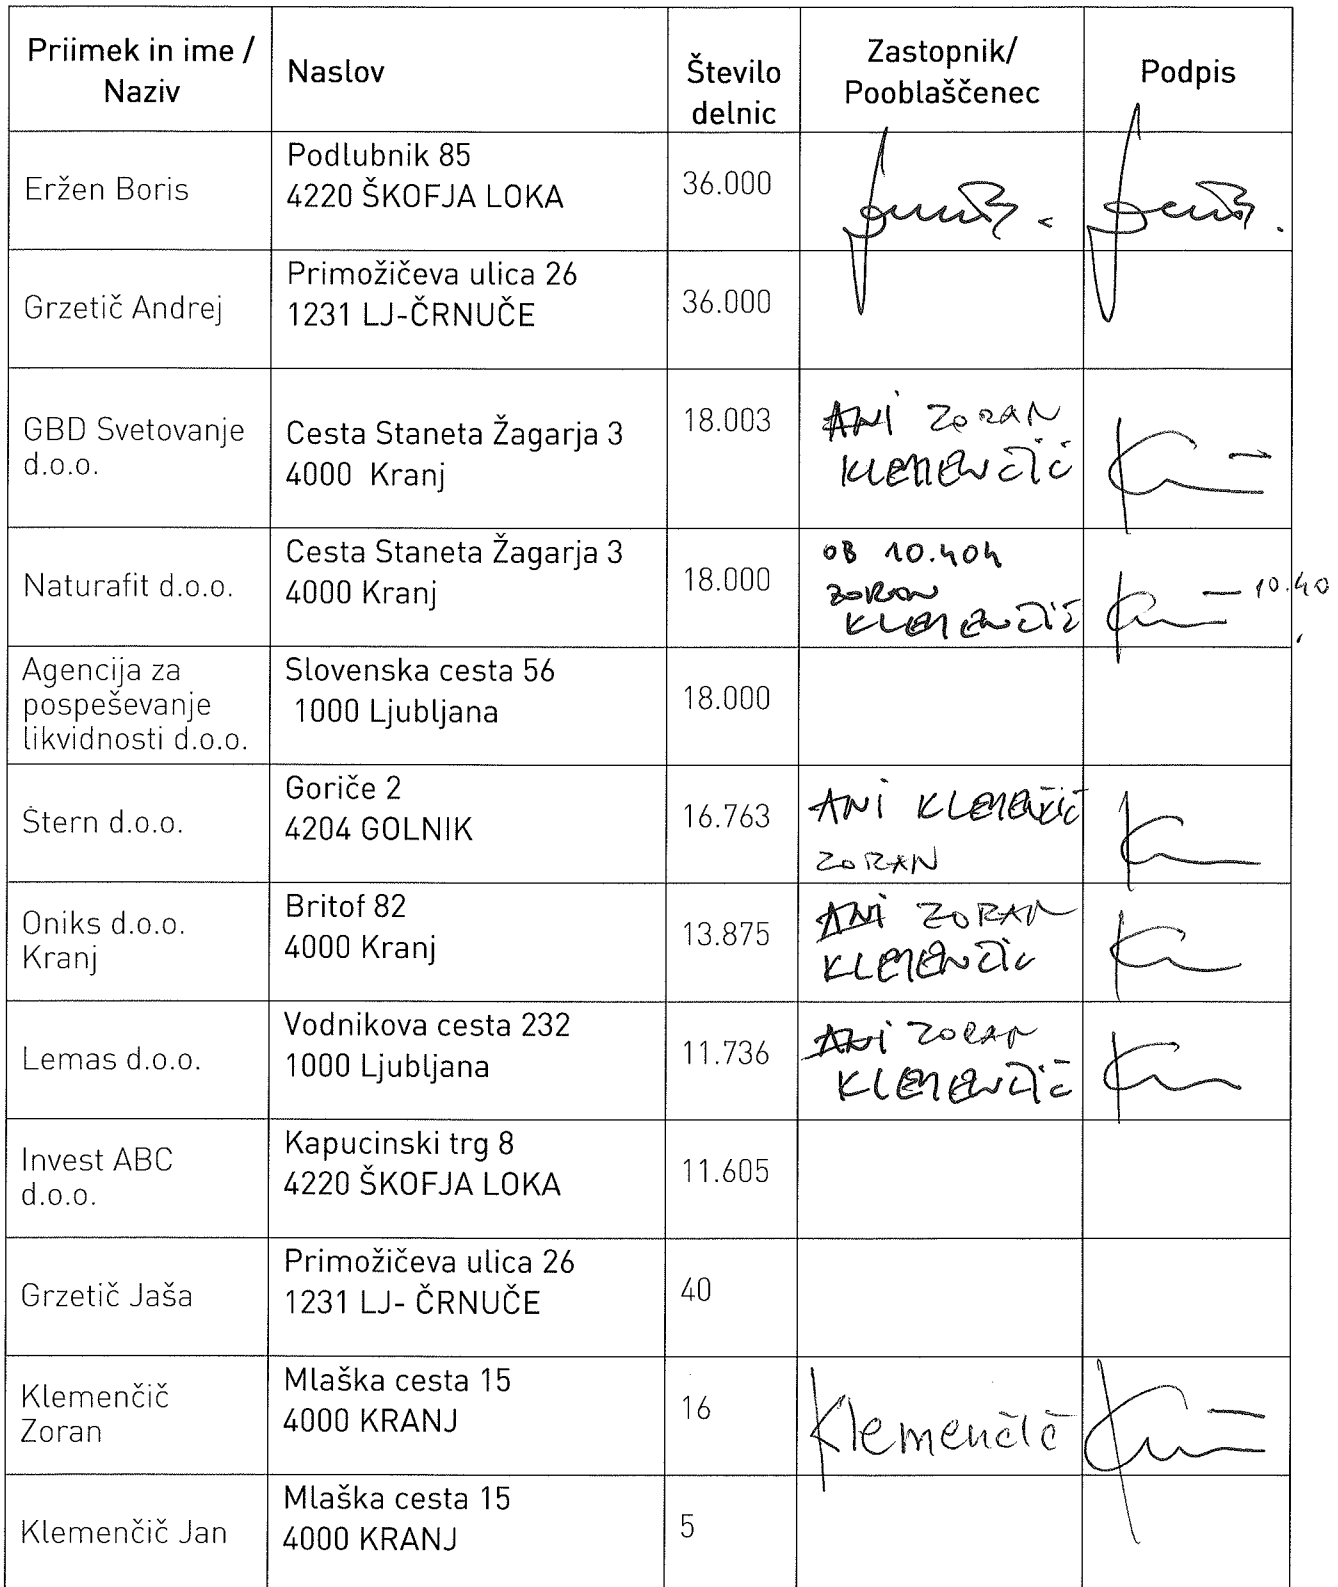 Priimek in ime /
Naziv
Naslov
Število
delnic
Zastopnik/
Pooblaščenec
Podpis
Eržen Boris
Podlubnik 85
4220 ŠKOFJA LOKA
36.000
Grzetič Andrej
Primožičeva ulica 26
1231 LJ-ČRNUČE
36.000
GBD Svetovanje
d.o.o.
Cesta Staneta Žagarja 3
4000 Kranj
18.003
ANI ZORAN
KLEMENČIČ
Naturafit d.o.o.
Cesta Staneta Žagarja 3
4000 Kranj
18.000
OB 10.40h
ZORAN
KLEMENČIČ
10.40
Agencija za
pospeševanje
likvidnosti d.o.o.
Slovenska cesta 56
1000 Ljubljana
18.000
Štern d.o.o.
Goriče 2
4204 GOLNIK
16.763
ANI KLEMENČIČ
ZORAN
Oniks d.o.o.
Kranj
Britof 82
4000 Kranj
13.875
ANI ZORAN
KLEMENČIČ
Lemas d.o.o.
Vodnikova cesta 232
1000 Ljubljana
11.736
ANI ZORAN
KLEMENČIČ
Invest ABC
d.o.o.
Kapucinski trg 8
4220 ŠKOFJA LOKA
11.605
Grzetič Jaša
Primožičeva ulica 26
1231 LJ- ČRNUČE
40
Klemenčič
Zoran
Mlaška cesta 15
4000 KRANJ
16
Klemenčič
Klemenčič Jan
Mlaška cesta 15
4000 KRANJ
5